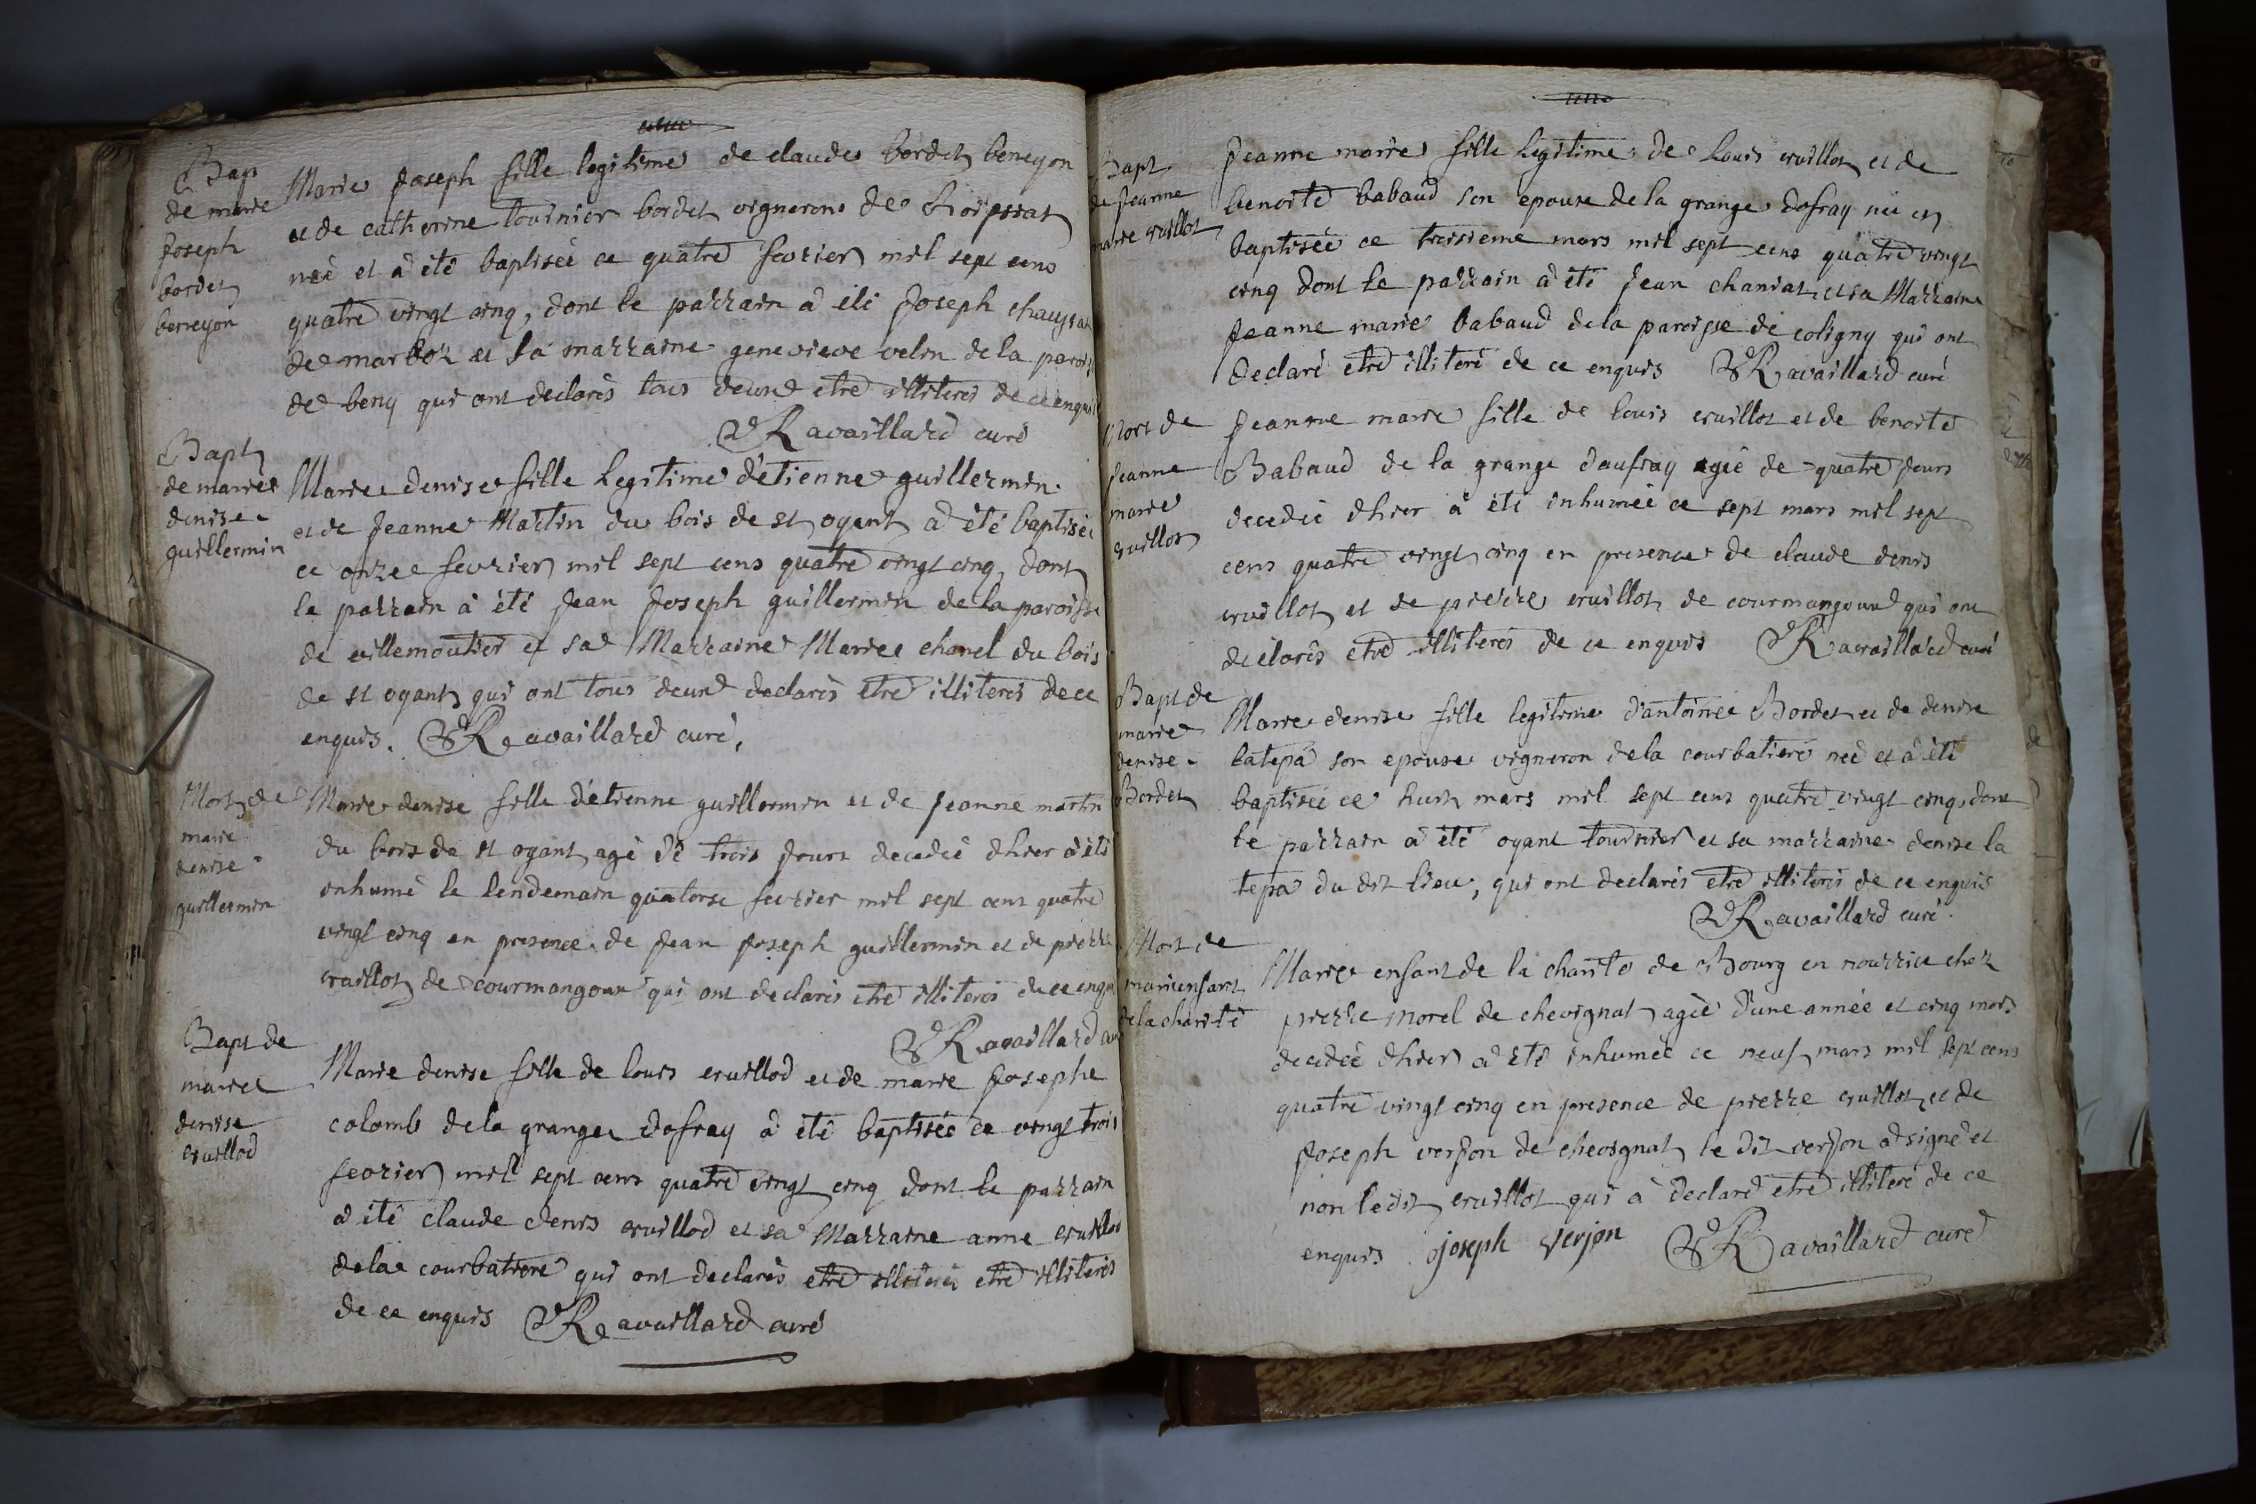 Bap
de marie
joseph
bordet
beneyon
Marie joseph fille legitime de claude bordet beneyon
et de catherine tournier bordet vigneron de Roissiat
née et à été baptisée ce quatre fevrier mil sept cens
quatre vingt cinq, dont le parrain à été joseph
de marboz et sa marraine genevieve velon de la parois
de beny qui ont declarés tous deux etre illiterés de ce enquis
Ravaillard curé
Bapt
de marie
denise
guillermin
Marie denise fille legitime d'etienne guillermin
et de jeanne Martin du bois de st oyant a été baptisée
ce onze fevrier mil sept cens quatre vingt cinq, dont
le parrain à été jean joseph guillermin de la paroisse
de villemoutier et sa Marraine Marie chanel du bois
de st oyant qui ont tous deux declarés etre illiterés de ce
enquis. Ravaillard curé,
Mort de
marie
denise
guillermin
Marie denise fille d'etienne guillermin et de jeanne martin
du bois de st oyant, agé de trois jours decedée d'hier à été
inhumé le lendemain quatorse fevrier mil sept cens quatre
vingt cinq en presence de jean joseph guillermin et de pierre
cruillot de courmangoux qui ont declarés etre illiterés de ce enqu
Ravaillard cu
Bapt de
marie
denise
cruillod
Marie denise fille de louis cruillod et de marie josephe
colomb de la grange dofray à été baptisée ce vingt trois
fevrier mil sept cens quatre vingt cinq dont le parrain
à été claude denis cruillod et sa Marraine anne cruillod
de la courbatiere qui ont declarés etre illiterés etre illiterés
de ce enquis Ravaillard curé
Bapt
de jeanne
marie cruillot
jeanne marie fille legitime de louis cruillot et de
benoite babaud son epouse de la grange dofray née et
baptisée ce troisieme mars mil sept cens quatre vingt
cinq dont le parrain à été jean chaniat et sa Marraine
jeanne marie babaud de la paroisse de coligny qui ont
declaré etre illiteré de ce enquis Ravaillard curé
Mort de
jeanne
marie
cruillot
jeanne marie fille de louis cruillot et de benoite
Babaud de la grange daufray agée de quatre jours
decedée d'hier à été inhumée ce sept mars mil sept
cens quatre vingt cinq en presence de claude denis
cruillot et de pierre cruillot de courmangoux qui ont
declarés etre illiterés de ce enquis Ravaillard curé
Bapt de
marie
denise
Bordet
Marie denise fille legitime d'antoine Bordet et de denise
latepa son epouse vigneron de la courbatiere née et à été
baptisée ce huit mars mil sept cens quatre vingt cinq, dont
le parrain à été oyant tournier et sa marraine denise la
tepa du dit lieu, qui ont declarés etre illiterés de ce enquis
Ravaillard curé.
Mort de
marie enfant
de la charité
Marie enfant de la charité de Bourg en nourrice chez
pierre morel de chevignat, agée d'une année et cinq mois
decedée d'hier à été inhumée ce neuf mars mil sept cens
quatre vingt cinq en presence de pierre cruillot, et de
joseph verjon de chevignat, le dit verjon à signé et
non le dit cruillot qui à declaré etre illiteré de ce
enquis joseph verjon Ravaillard curé